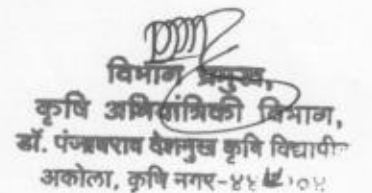 विभाग प्रमुख,
कृषि अभियांत्रिकी विभाग,
डॉ. पंजाबराव देशमुख कृषि विद्यापीठ
अकोला, कृषि नगर-४४४१०४